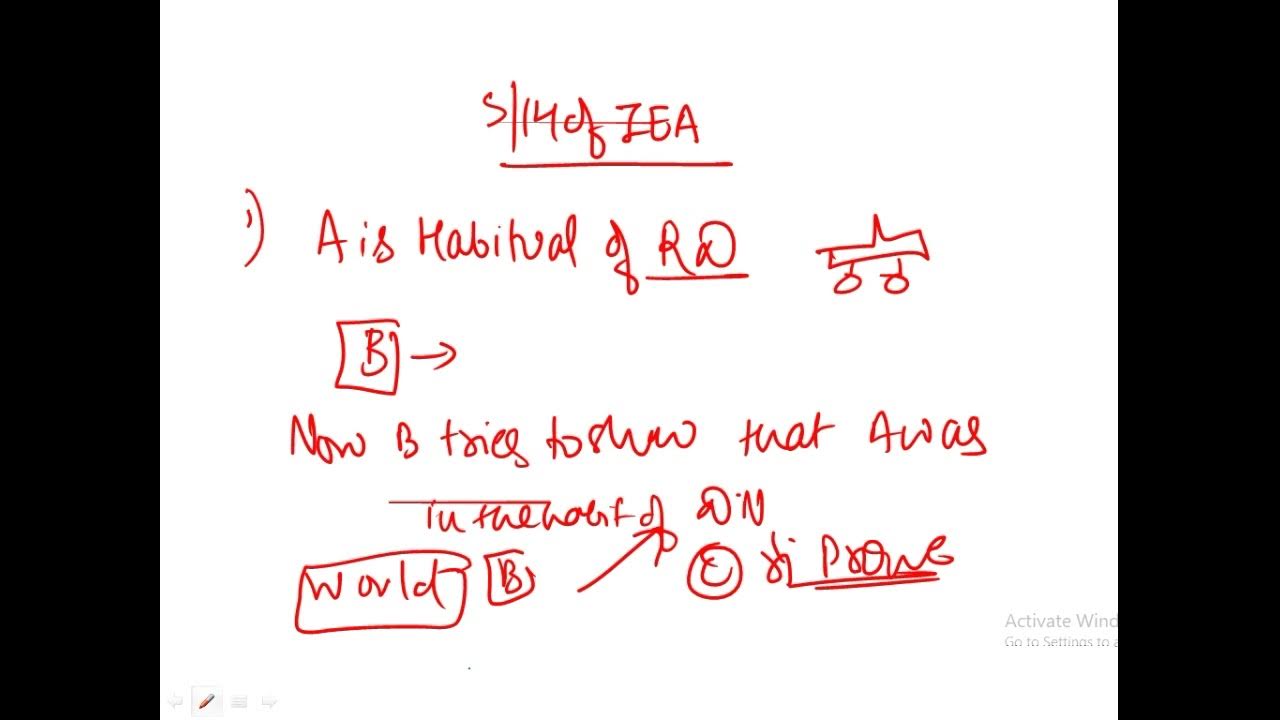 S/14 of IEA
i) A is Habitual of RD
B →
Now B tries to show that A was
in the habit of
World B C Prone
Activate Wind
Go to Settings to a